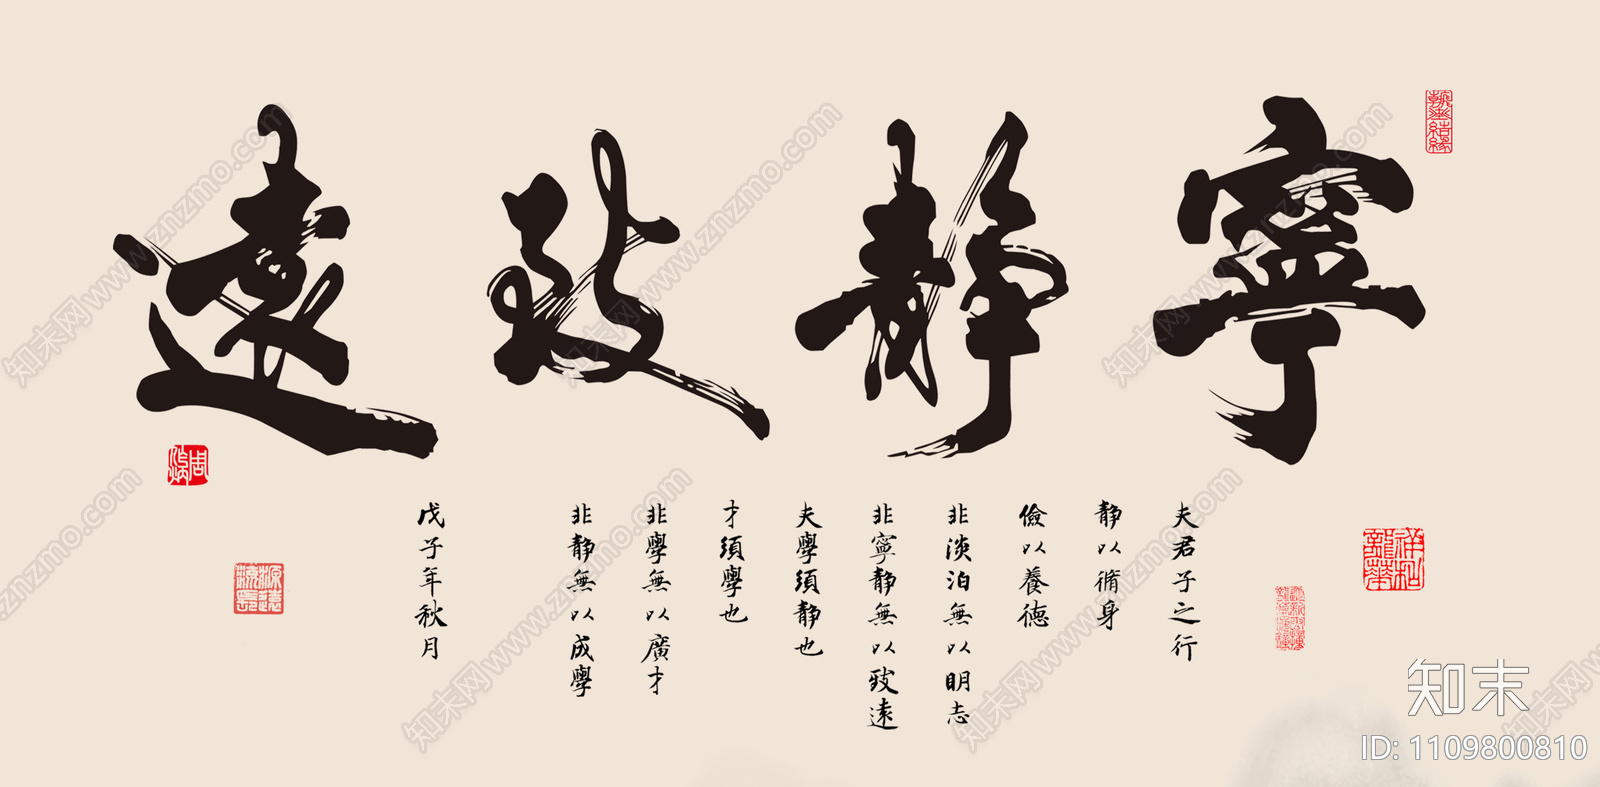 寧靜致遠
夫君子之行
静以脩身
儉以養德
非淡泊無以明志
非寧静無以致遠
夫學須静也
才須學也
非學無以廣才
非静無以成學
戊子年秋月
知末
ID: 1109800810
知末网www.znzmo.com